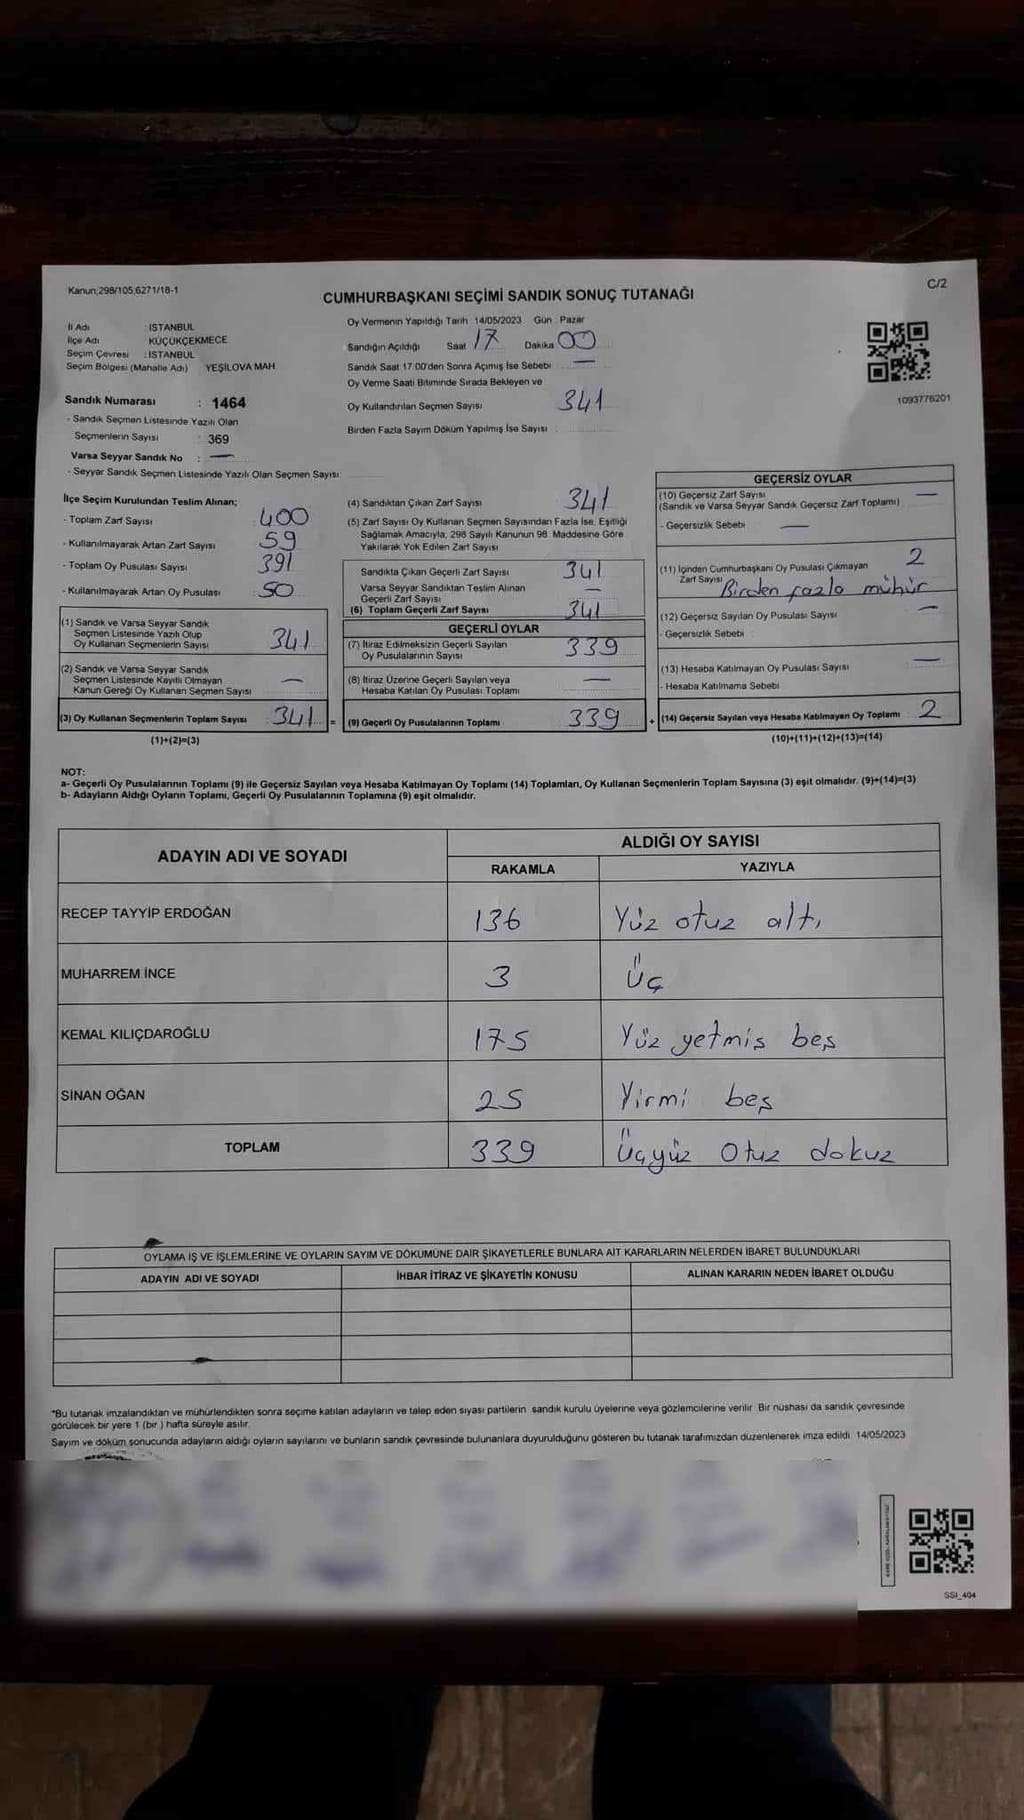 Kanun;298/105,6271/18-1
C/2
CUMHURBAŞKANI SEÇİMİ SANDIK SONUÇ TUTANAĞI
İl Adı : İSTANBUL
İlçe Adı : KÜÇÜKÇEKMECE
Seçim Çevresi : İSTANBUL
Seçim Bölgesi (Mahalle Adı) YEŞİLOVA MAH
Sandık Numarası : 1464
- Sandık Seçmen Listesinde Yazılı Olan
Seçmenlerin Sayısı : 369
Varsa Seyyar Sandık No : —
- Seyyar Sandık Seçmen Listesinde Yazılı Olan Seçmen Sayısı:
Oy Vermenin Yapıldığı Tarih : 14/05/2023 Gün : Pazar
Sandığın Açıldığı Saat 17 Dakika 00
Sandık Saat 17:00'den Sonra Açımış İse Sebebi : —
Oy Verme Saati Bitiminde Sırada Bekleyen ve
Oy Kullandırılan Seçmen Sayısı 341
Birden Fazla Sayım Döküm Yapılmış İse Sayısı :
1093776201
İlçe Seçim Kurulundan Teslim Alınan;
- Toplam Zarf Sayısı : 400
- Kullanılmayarak Artan Zarf Sayısı : 59
- Toplam Oy Pusulası Sayısı : 391
- Kullanılmayarak Artan Oy Pusulası : 50
(1) Sandık ve Varsa Seyyar Sandık
Seçmen Listesinde Yazılı Olup
Oy Kullanan Seçmenlerin Sayısı 341
(2) Sandık ve Varsa Seyyar Sandık
Seçmen Listesinde Kayıtlı Olmayan
Kanun Gereği Oy Kullanan Seçmen Sayısı —
(3) Oy Kullanan Seçmenlerin Toplam Sayısı 341 =
(1)+(2)=(3)
(4) Sandıktan Çıkan Zarf Sayısı 341
(5) Zarf Sayısı Oy Kullanan Seçmen Sayısından Fazla İse, Eşitliği
Sağlamak Amacıyla, 298 Sayılı Kanunun 98. Maddesine Göre
Yakılarak Yok Edilen Zarf Sayısı
Sandıkta Çıkan Geçerli Zarf Sayısı 341
Varsa Seyyar Sandıktan Teslim Alınan
Geçerli Zarf Sayısı —
(6) Toplam Geçerli Zarf Sayısı 341
GEÇERLİ OYLAR
(7) İtiraz Edilmeksizin Geçerli Sayılan
Oy Pusulalarının Sayısı 339
(8) İtiraz Üzerine Geçerli Sayılan veya
Hesaba Katılan Oy Pusulası Toplamı —
(9) Geçerli Oy Pusulalarının Toplamı 339 +
GEÇERSİZ OYLAR
(10) Geçersiz Zarf Sayısı —
(Sandık ve Varsa Seyyar Sandık Geçersiz Zarf Toplamı)
- Geçersizlik Sebebi : —
(11) İçinden Cumhurbaşkanı Oy Pusulası Çıkmayan 2
Zarf Sayısı Birden fazla mühür
(12) Geçersiz Sayılan Oy Pusulası Sayısı —
- Geçersizlik Sebebi :
(13) Hesaba Katılmayan Oy Pusulası Sayısı —
- Hesaba Katılmama Sebebi
(14) Geçersiz Sayılan veya Hesaba Katılmayan Oy Toplamı 2
(10)+(11)+(12)+(13)=(14)
NOT:
a- Geçerli Oy Pusulalarının Toplamı (9) ile Geçersiz Sayılan veya Hesaba Katılmayan Oy Toplamı (14) Toplamları, Oy Kullanan Seçmenlerin Toplam Sayısına (3) eşit olmalıdır. (9)+(14)=(3)
b- Adayların Aldığı Oyların Toplamı, Geçerli Oy Pusulalarının Toplamına (9) eşit olmalıdır.
ADAYIN ADI VE SOYADI ALDIĞI OY SAYISI
RAKAMLA YAZIYLA
RECEP TAYYİP ERDOĞAN 136 Yüz otuz altı
MUHARREM İNCE 3 Üç
KEMAL KILIÇDAROĞLU 175 Yüz yetmiş beş
SİNAN OĞAN 25 Yirmi beş
TOPLAM 339 Üçyüz Otuz dokuz
OYLAMA İŞ VE İŞLEMLERİNE VE OYLARIN SAYIM VE DÖKÜMÜNE DAİR ŞİKAYETLERLE BUNLARA AİT KARARLARIN NELERDEN İBARET BULUNDUKLARI
ADAYIN ADI VE SOYADI İHBAR İTİRAZ VE ŞİKAYETİN KONUSU ALINAN KARARIN NEDEN İBARET OLDUĞU
*Bu tutanak imzalandıktan ve mühürlendikten sonra seçime katılan adayların ve talep eden siyasi partilerin sandık kurulu üyelerine veya gözlemcilerine verilir. Bir nüshası da sandık çevresinde
görülecek bir yere 1 (bir ) hafta süreyle asılır.
Sayım ve döküm sonucunda adayların aldığı oyların sayılarını ve bunların sandık çevresinde bulunanlara duyurulduğunu gösteren bu tutanak tarafımızdan düzenlenerek imza edildi. 14/05/2023
SSI_404